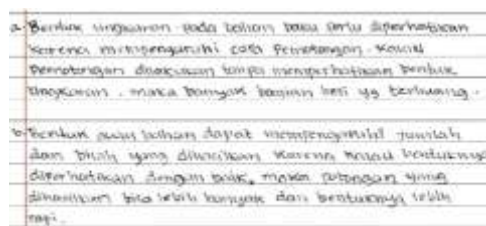 a. Bentuk lingkaran pada bahan baku perlu diperhatikan
karena mempengaruhi cara pemotongan. Kalau
pemotongan dilakukan tanpa memperhatikan bentuk
lingkaran, maka banyak bagian besi yg terbuang.
b. Bentuk awal bahan dapat mempengaruhi jumlah
dan yang dihasilkan karena kalau bentuknya
diperhatikan dengan baik, maka potongan yang
dihasilkan bisa lebih banyak dan bentuknya lebih
rapi.